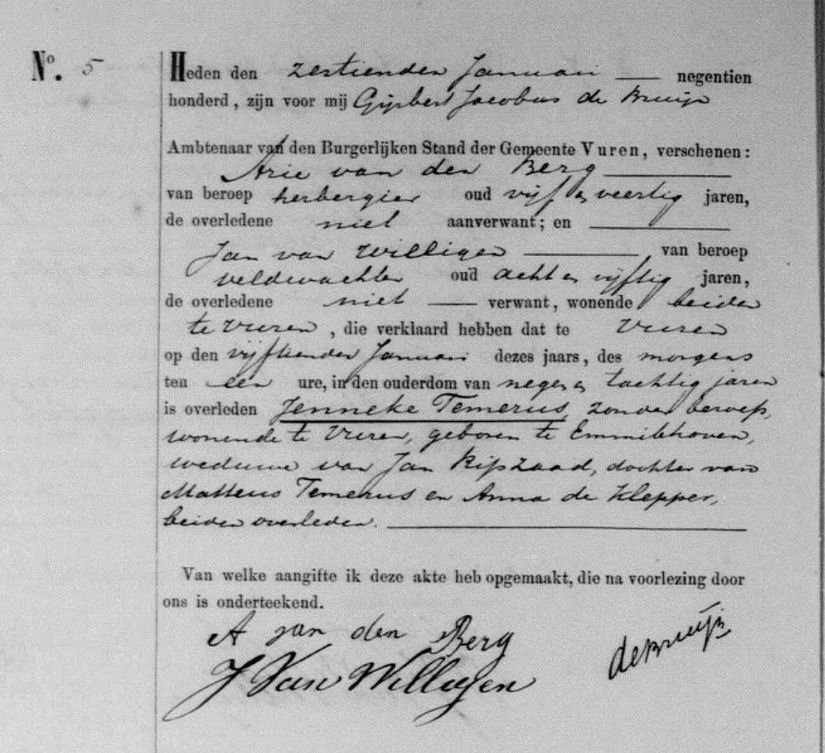 No. 5
Heden den zestienden Januari negentien
honderd, zijn voor mij Gijsbert Jacobus de Bruijn
Ambtenaar van den Burgerlijken Stand der Gemeente Vuren, verschenen:
Arie van den Berg
van beroep herbergier oud vijf en veertig jaren,
de overledene niet aanverwant; en
Jan van Willigen van beroep
veldwachter oud acht en vijftig jaren,
de overledene niet verwant, wonende beiden
te Vuren, die verklaard hebben dat te Vuren
op den vijftienden Januari dezes jaars, des morgens
ten een ure, in den ouderdom van negen en tachtig jaren
is overleden Jenneke Temerus, zonder beroep,
wonende te Vuren, geboren te Emmikhoven,
weduwe van Jan Kipzaad, dochter van
Matteus Temerus en Anna de Klepper,
beiden overleden.
Van welke aangifte ik deze akte heb opgemaakt, die na voorlezing door
ons is onderteekend.
A van den Berg
J Van Willigen
de Bruijn